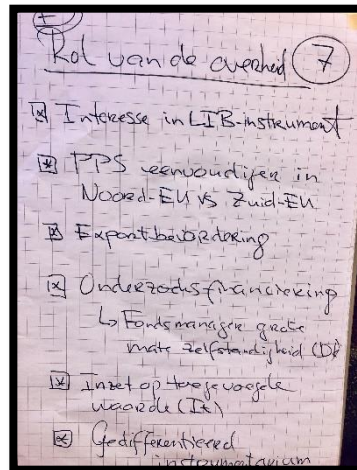 Rol van de overheid 7
Interesse in LIB-instrument
PPS eenvoudiger in
Noord-EU vs Zuid-EU
Exportbevordering
Onderzoeksfinanciering
↳ Fondsmanager grote
mate zelfstandigheid (D)
Inzet op toegevoegde
waarde (It)
Gedifferentieerd
instrumentarium